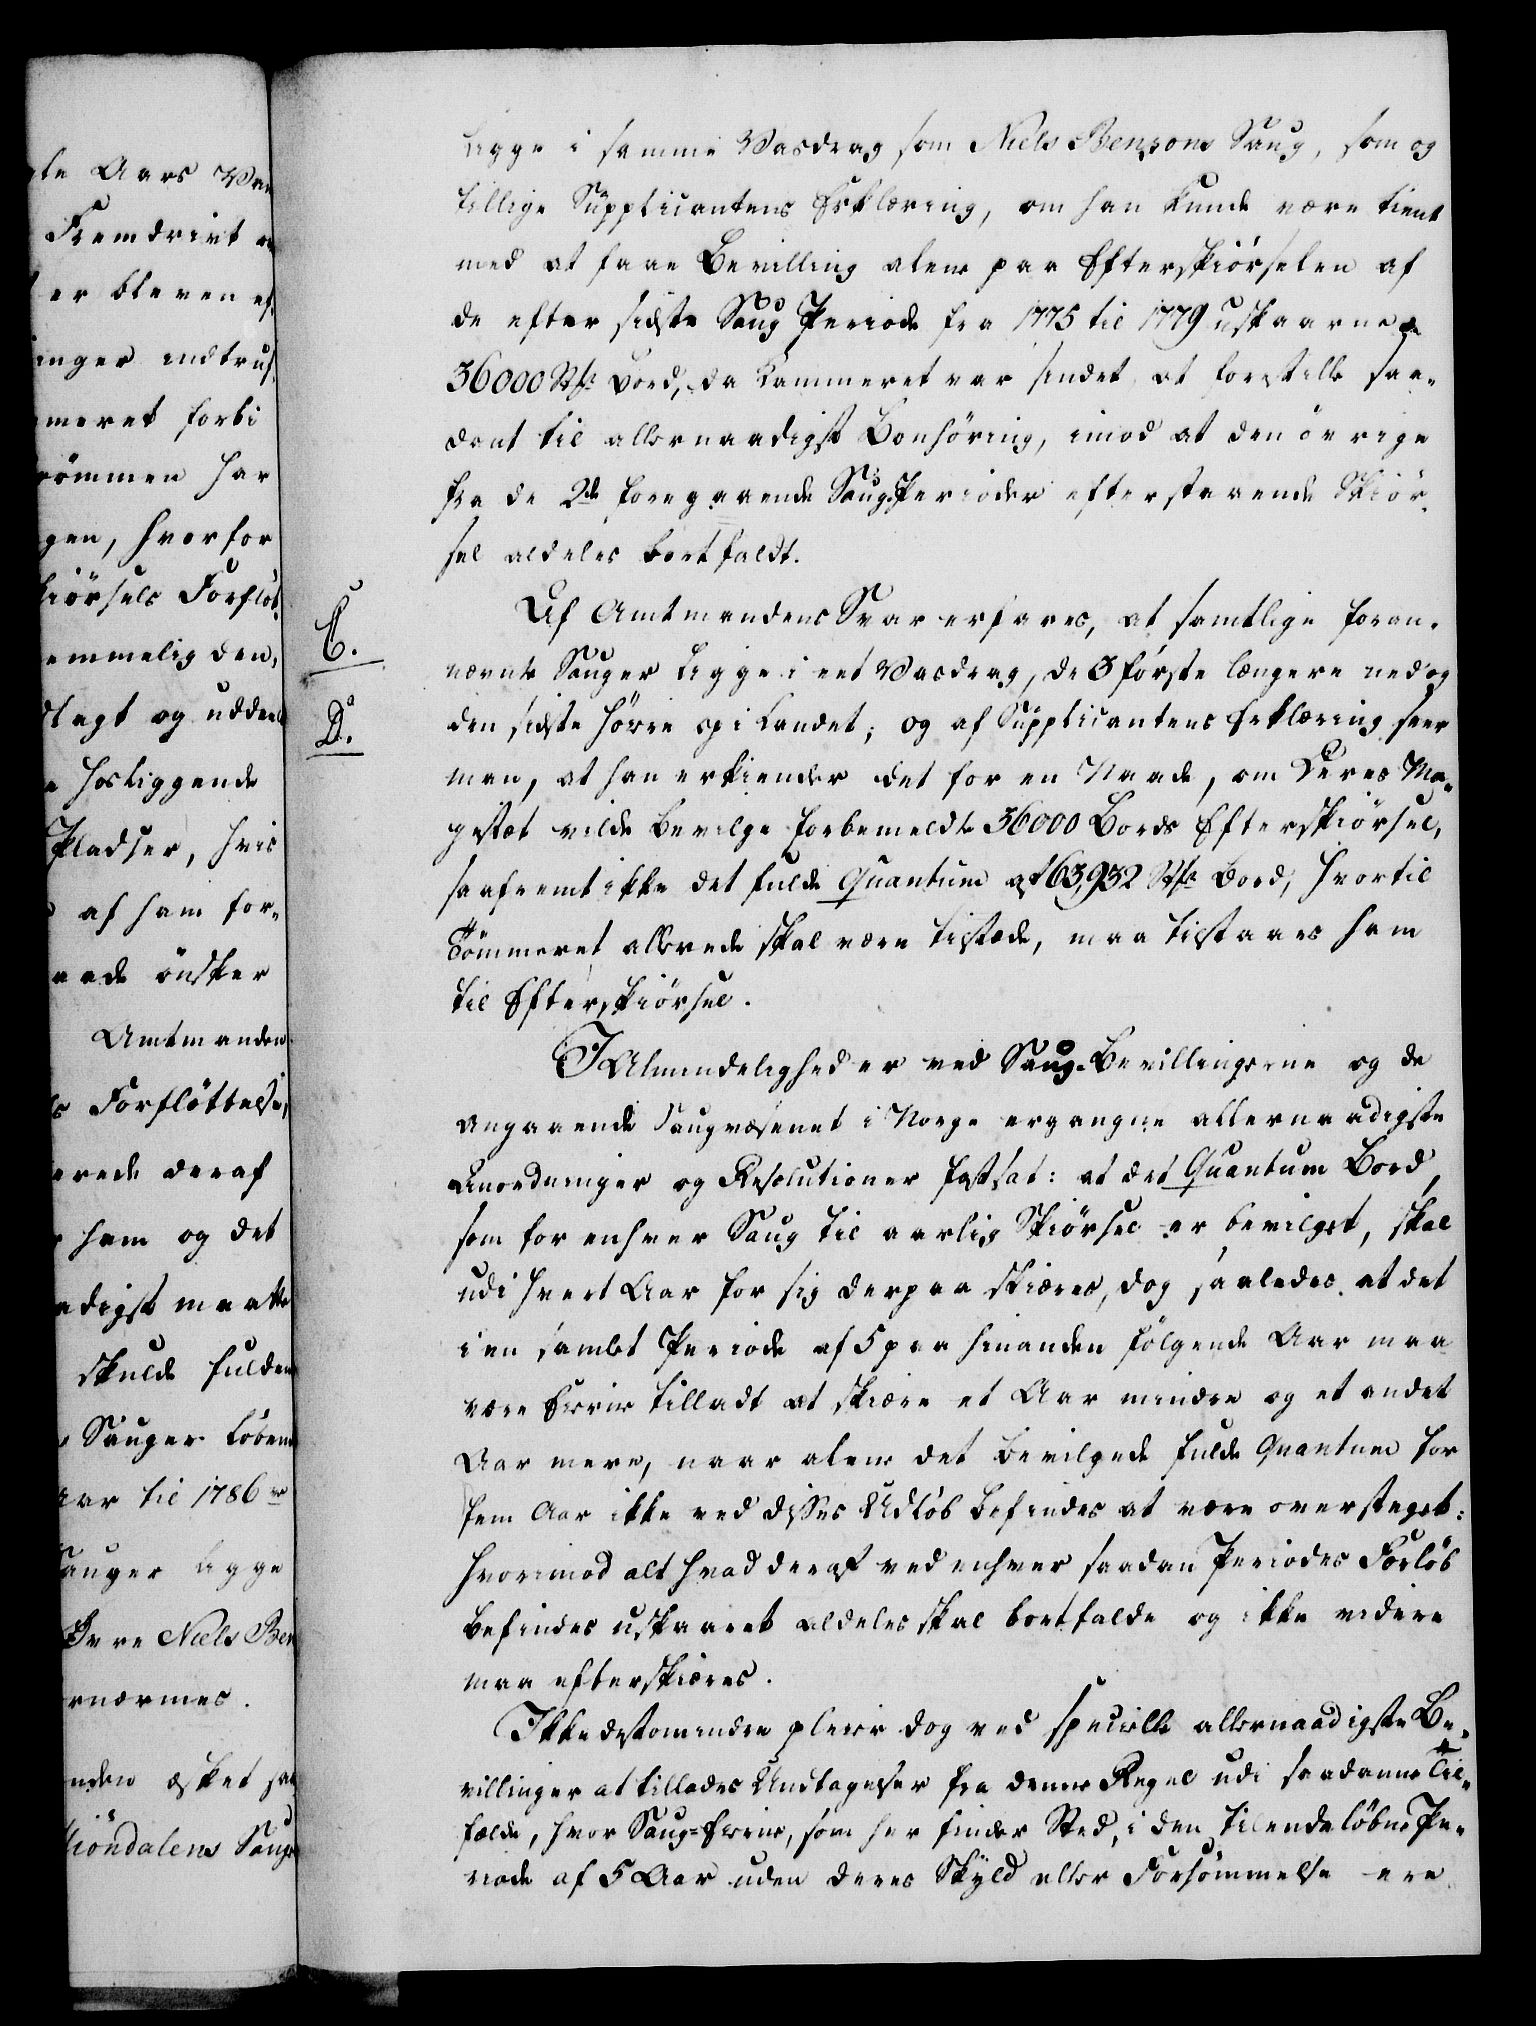 te Aars Van
Fremdrivt
er bleven ef
inger indtruf
meret forbi
ömmen har
gen, hvorfor
kiörsels Forflöt
emmelig den,
tagt og uddeel
hosliggende
Pladser, hvis
af ham for=
aade önsker
Amtmanden
Forflöttelse,
erede deraf
ham og det
adigst maatte
skulde fulden
Sauger Löben
aar til 1786
Sauger ligge
Øvre Niels Ben
ornærmes.
nden æsket saa
Miöndalens Saug
ligge i samme Vasdrag som Niels Bensons Saug, som og
tillige Supplicantens Erklæring, om han kunde være tient
med at faae Bevilling alene paa Efterskiörselen af
de efter sidste Saug Periode fra 1775 til 1779 uskaarne
36000 St. Bord, da Kammeret var sindet at forestille saa=
dant til allernaadigst Bonhöring, imod at den övrige
fra de 2de foregaaende Saug-Perioder efterstaaende Skiör
sel aldeles bortfaldt.
C.
Af Amtmandens Svar erfares, at samtlige foran=
nævnte Sauger ligge i eet Vasdrag, de 3 förste længere ned og
D.
den sidste höiere op i Landet; og af Supplicantens Erklæring seer
man, at han erkiender det for en Naade, om Deres Ma=
gestæt vilde bevilge forbemeldte 36000 Bords Efterskiörsel,
saafremt ikke det fulde Quantum af 63,932 St. Bord, hvortil
Tömmeret allerede skal være tilstæde, maa tilstaaes ham
til Efterskiörsel.
I Almindelighed er ved Saug-Bevillingerne og de
angaaende Saugvæsenet i Norge ergangne allernaadigste
Anordninger og Resolutioner fastsat: at det Quantum Bord,
som for enhver Saug til aarlig Skiörsel er bevilget, skal
udi hvert Aar for sig derpaa skiæres, dog saaledes at det
i en samlet Periode af 5 paa hinanden fölgende Aar maa
være Eierne tilladt at skiære et Aar mindre og et andet
Aar mere, naar alene det bevilgede fulde Quantum for
fem Aar ikke ved disses Udlöb befindes at være oversteget:
hvorimod alt hvad deraf ved enhver saadan Periodes Forlöb
befindes uskaaret aldeles skal bortfalde og ikke videre
maa efterskiæres.
Ikke destomindre pleier dog ved specielle allernaadigste Be=
villinger at tillades Undtagelser fra denne Regel udi saadanne Til=
fælde, hvor Saug=Eierne, som her finder Sted, i den tilendelöbne Pe=
riode af 5 Aar uden deres Skyld eller Forsömmelse ere